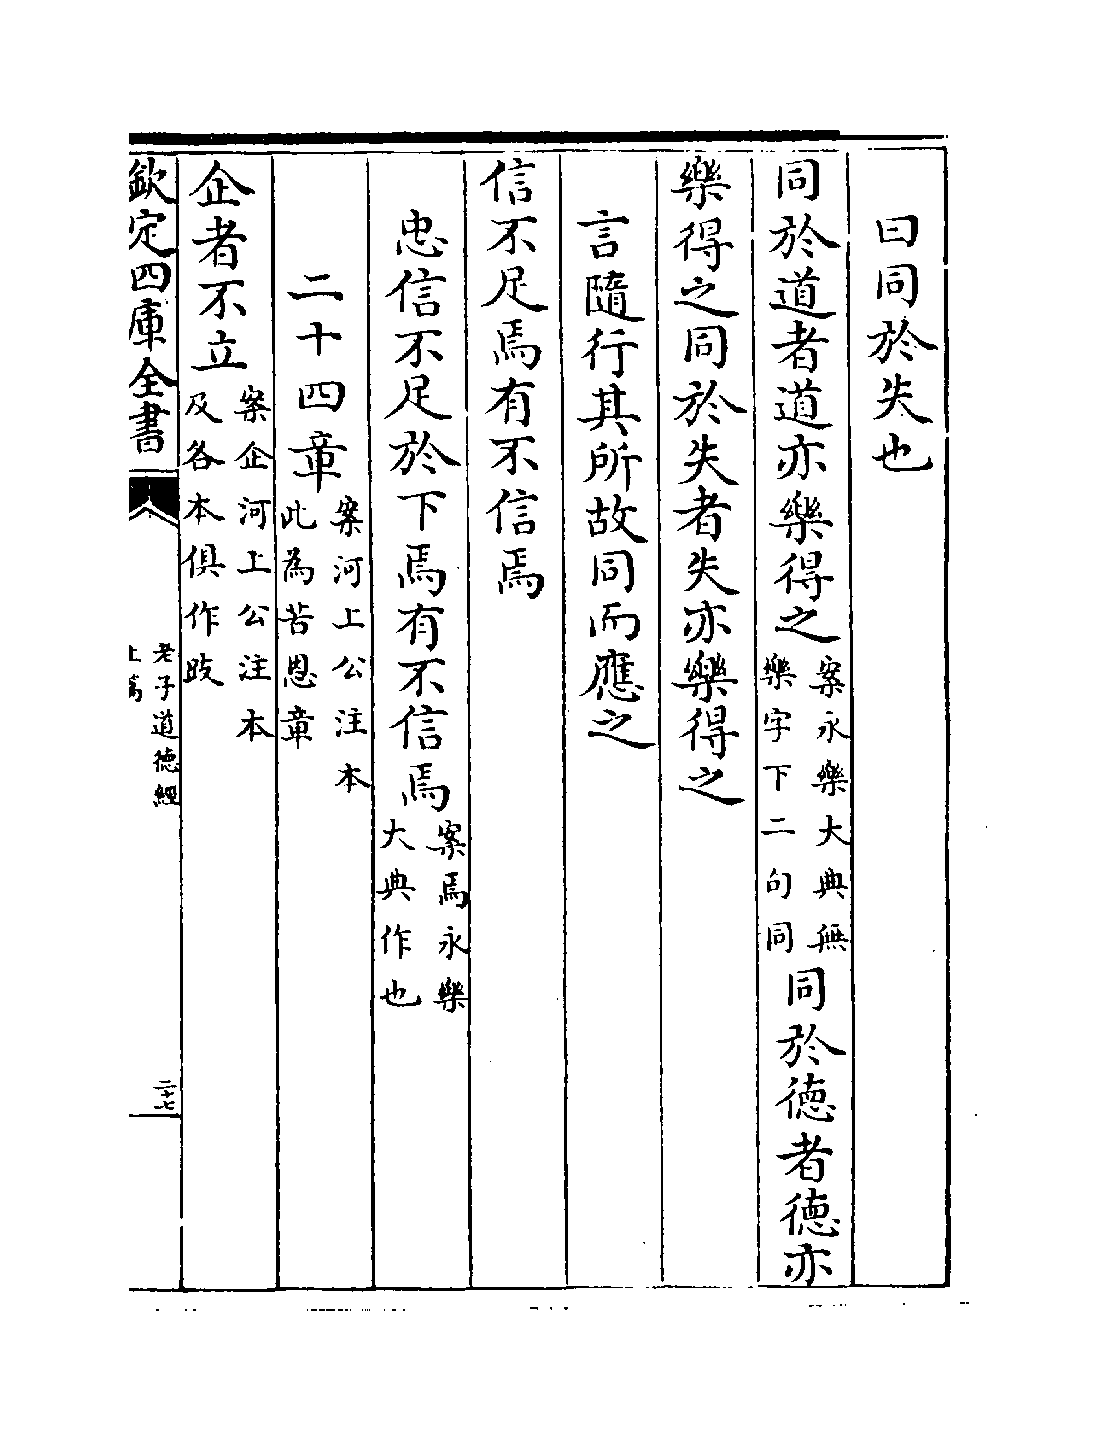 曰同於失也
同於道者道亦樂得之案永樂大典無樂字下二句同同於德者德亦
樂得之同於失者失亦樂得之
言隨行其所故同而應之
信不足焉有不信焉
忠信不足於下焉有不信焉案焉永樂大典作也
二十四章案河上公注本此為苦恩章
企者不立案企河上公注本及各本俱作跂
欽定四庫全書
老子道德經
上篇
二十七